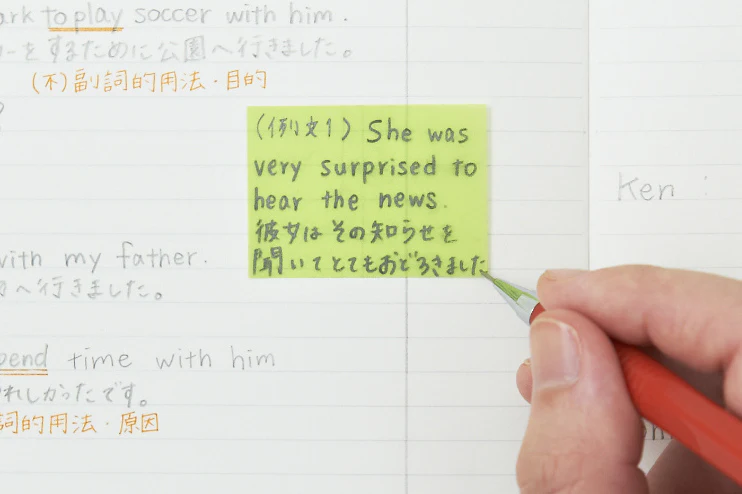 ark to play soccer with him.
をするために公園へ行きました。
(不)副詞的用法・目的
?
(例文1) She was
very surprised to
hear the news.
彼女はその知らせを
聞いてとてもおどろきました
Ken :
with my father.
へ行きました。
pend time with him
れしかったです。
詞的用法・原因